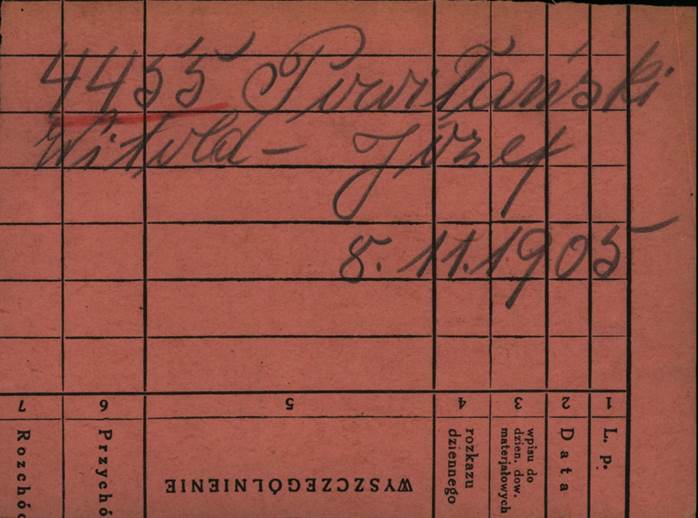 4455
Witold - Józef
8.11.1905
1 2 3 4 5 6 7
L. p.
Data
wpisu do
dzien. dow.
materjałowych
rozkazu
dziennego
WYSZCZEGÓLNIENIE
Przychó
Rozchó